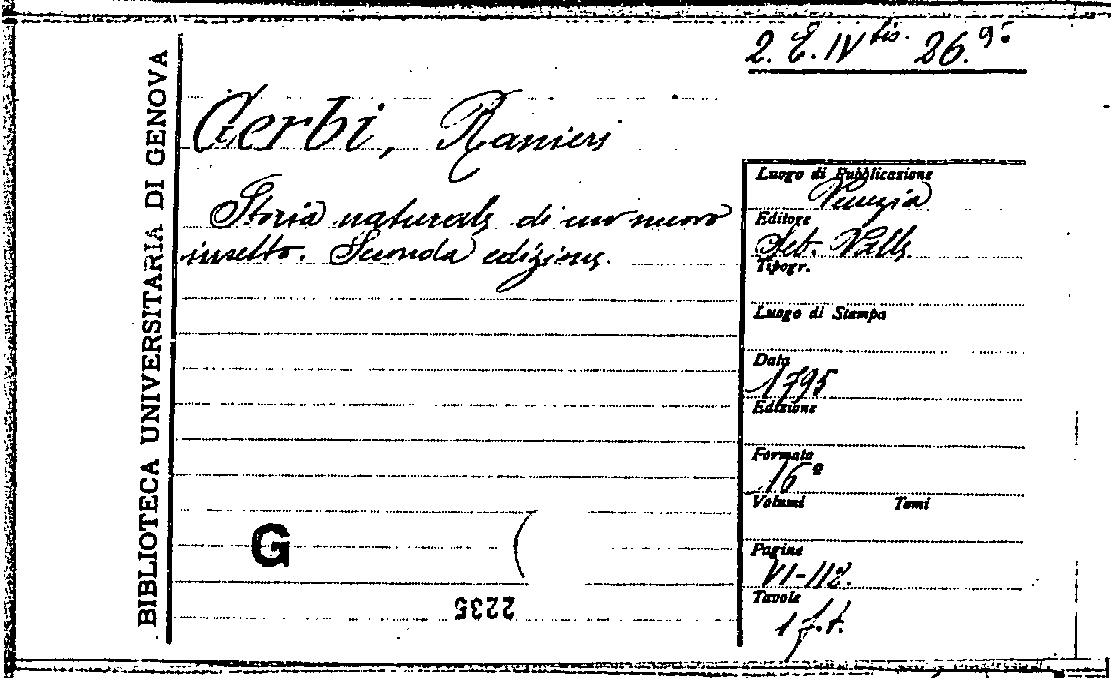 2. E. IV bis. 26. 9º
BIBLIOTECA UNIVERSITARIA DI GENOVA
Gerbi, Ranieri
Storia naturale di un nuovo
insetto. Seconda edizione.
Luogo di Pubblicazione
Venezia
Editore
Seb. Valle
Tipogr.
Luogo di Stampa
Data
1795
Edizione
Formato
16º
Volumi Tomi
Pagine
VI-112.
Tavole
1 f.t.
G
2235